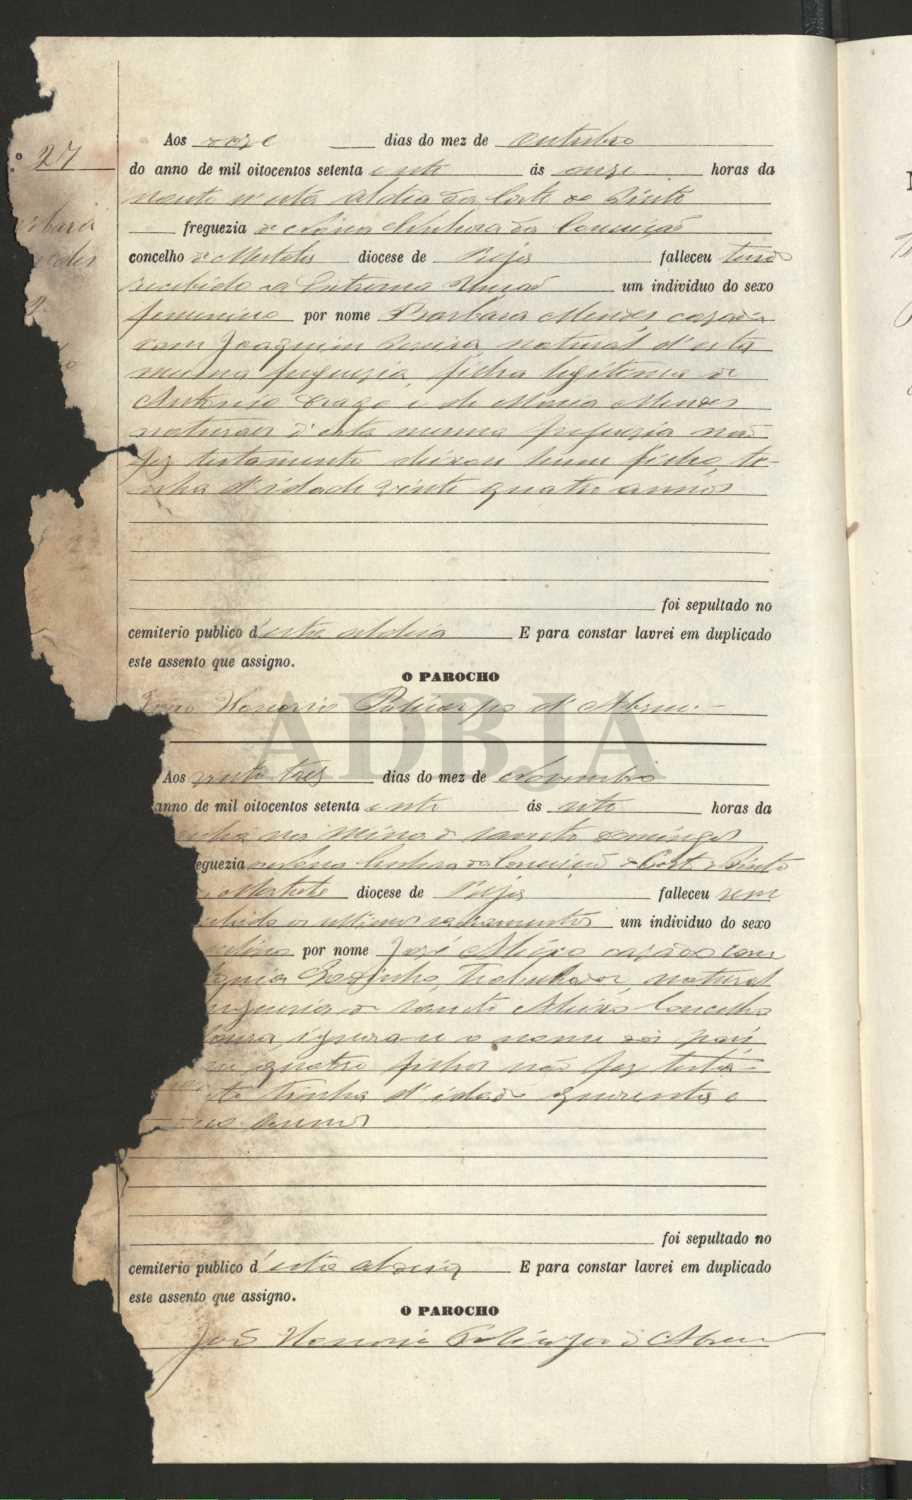 27
Aos doze dias do mez de outubro
do anno de mil oitocentos setenta e sete ás onze horas da
noute n'esta aldeia da Corte do Pinto
freguezia de Nossa Senhora da Conceição
concelho de Mertola diocese de Beja falleceu tendo
recebido a Extrema Unção um individuo do sexo
femenino por nome Barbara Mendes cazada
com Joaquim Pereira natural d'esta
mesma freguezia, filha legitima de
Antonio Drago e de Maria Mendes
naturaes d'esta mesma freguezia não
fez testamento deixou hum filho, ti-
nha d'idade vinte quatro annos
foi sepultado no
cemiterio publico d'esta aldeia E para constar lavrei em duplicado
este assento que assigno.
O PAROCHO
João Honorio Policarpo d'Abreu
ADBJA
Aos vinte tres dias do mez de Novembro
anno de mil oitocentos setenta e sete ás oito horas da
na Mina de Santo Domingos
eguezia Senhora da Conceição Corte do Pinto
Mertola diocese de Beja falleceu sem
os ultimos sacramentos um individuo do sexo
por nome José Aleixo cazado com
trabalhador, natural
de Santo Aleixo Concelho
o nome dos pais
quatro filhos não fez testa-
tinha d'idade quarenta e
annos
foi sepultado no
cemiterio publico d'esta aldeia E para constar lavrei em duplicado
este assento que assigno.
O PAROCHO
João Honorio Policarpo d'Abreu